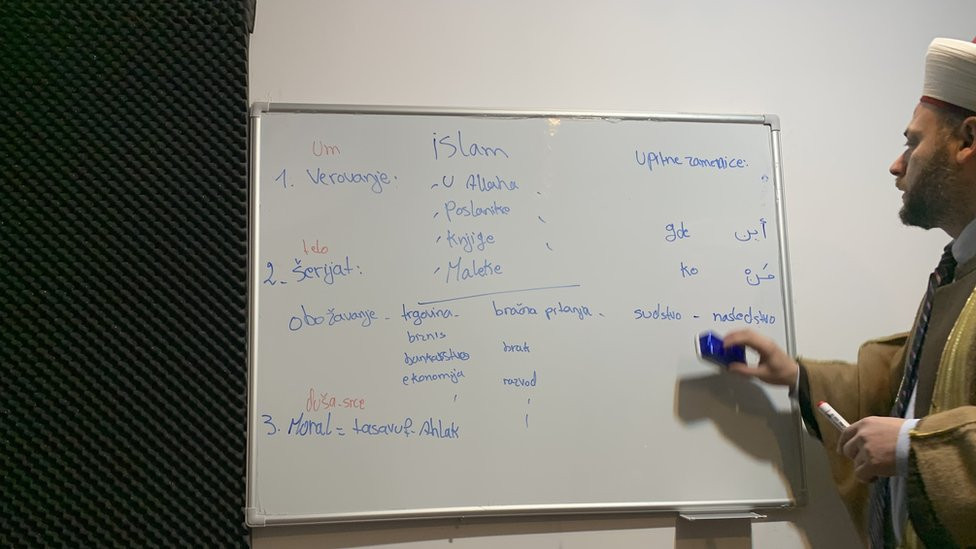 Um
islam
Upitne zamenice:
1. Verovanje.
U Allaha
Poslanike
Knjige
Meleke
gde أين
ko مَن
telo
2. Šerijat:
Obožavanje - trgovina - bračna pitanja - sudstvo - nasledstvo
biznis
bankarstvo
ekonomija
brak
razvod
duša-srce
3. Moral = tasavuf. Ahlak